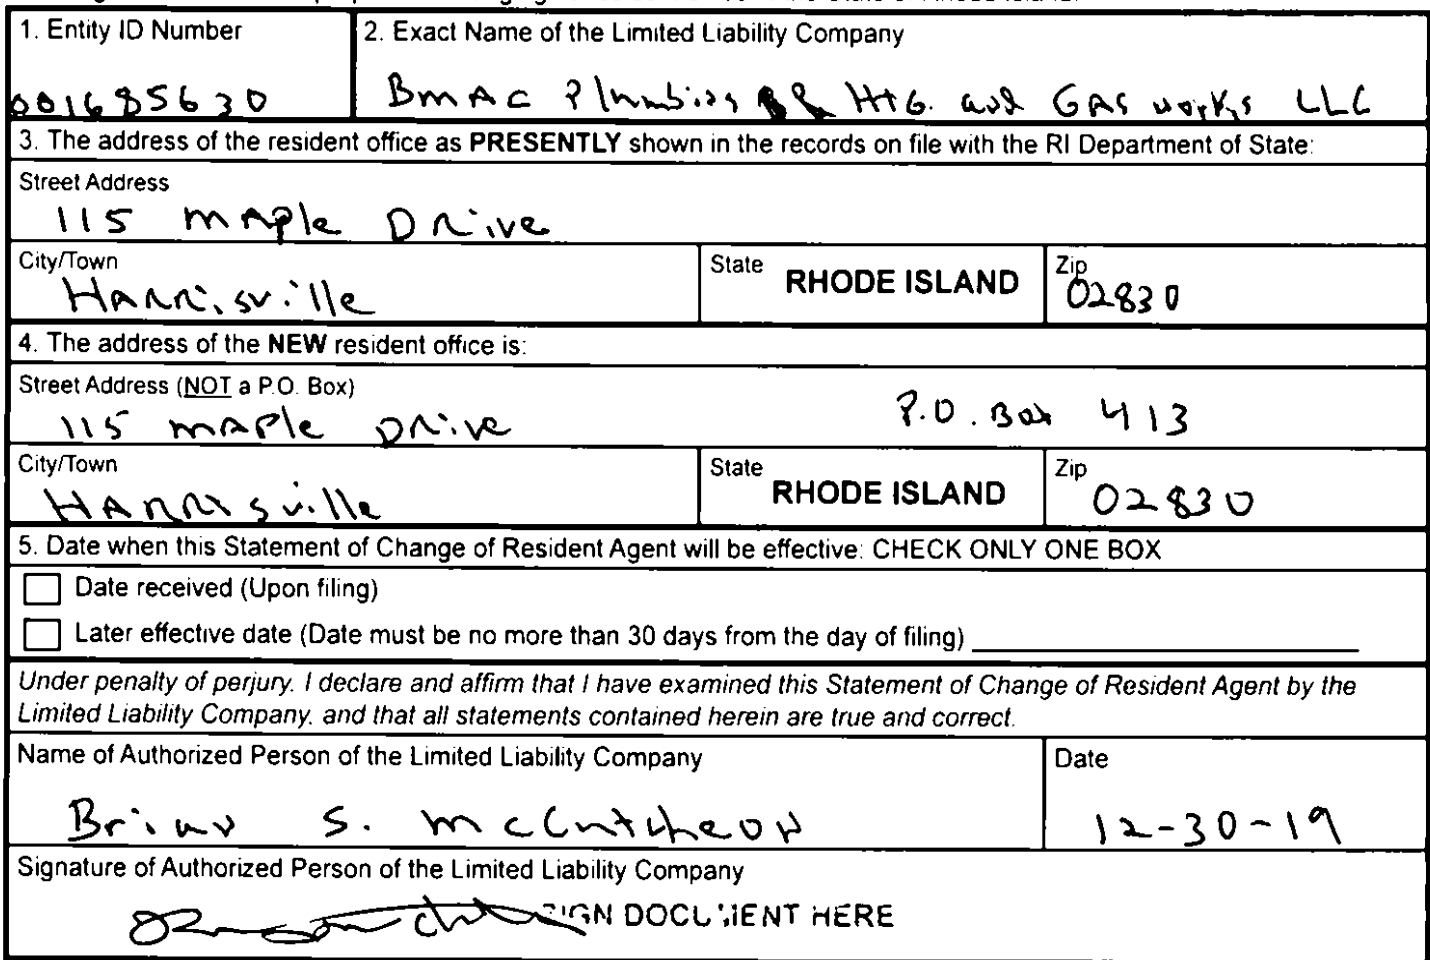 1. Entity ID Number
001685630
2. Exact Name of the Limited Liability Company
BMAC Plumbing & HTG. and GAS works LLC
3. The address of the resident office as PRESENTLY shown in the records on file with the RI Department of State:
Street Address
115 MAple DRive
City/Town
HARRisville
State RHODE ISLAND
Zip
02830
4. The address of the NEW resident office is:
Street Address (NOT a P.O. Box)
115 MAPle DRive P.O. Box 413
City/Town
HARRisville
State RHODE ISLAND
Zip 02830
5. Date when this Statement of Change of Resident Agent will be effective: CHECK ONLY ONE BOX
Date received (Upon filing)
Later effective date (Date must be no more than 30 days from the day of filing)
Under penalty of perjury, I declare and affirm that I have examined this Statement of Change of Resident Agent by the
Limited Liability Company, and that all statements contained herein are true and correct.
Name of Authorized Person of the Limited Liability Company
Brian S. McCutcheon
Date
12-30-19
Signature of Authorized Person of the Limited Liability Company
SIGN DOCUMENT HERE